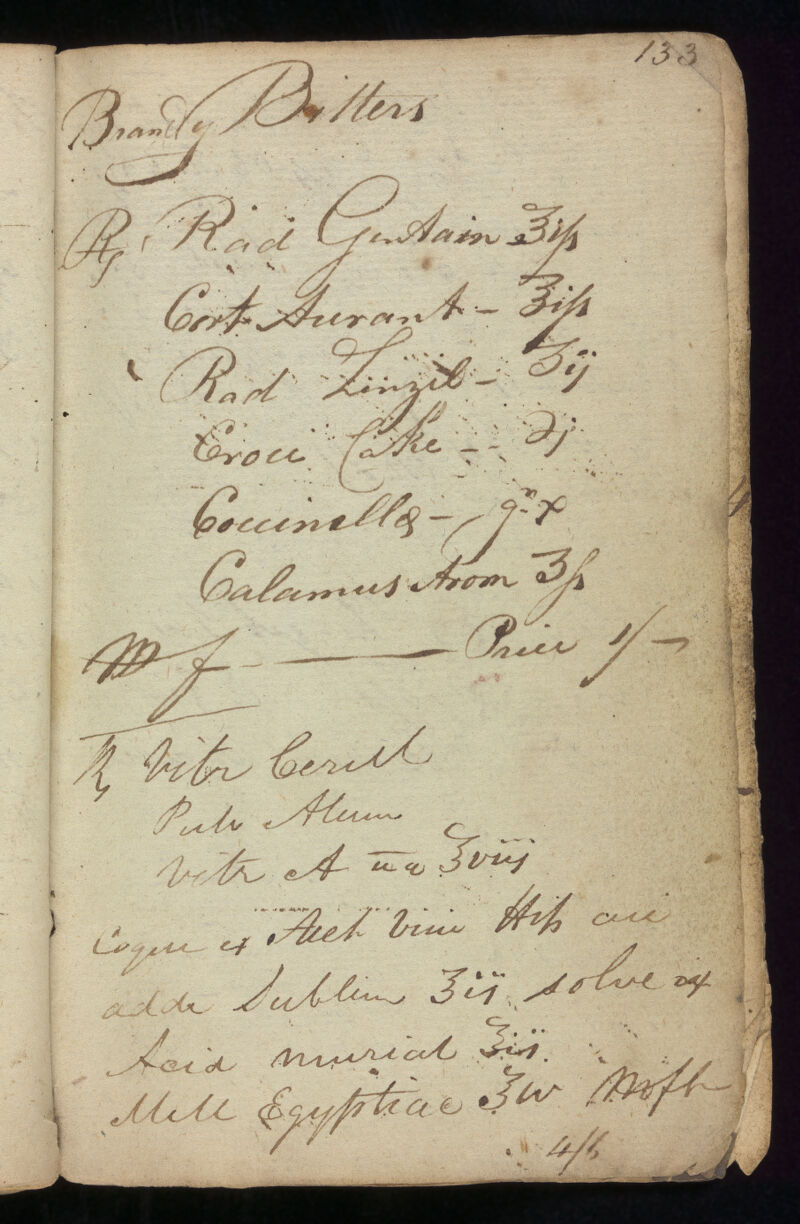 133
Brandy Bitters
℞ Rad Gentain ℥iſs
Cort Aurant - ℥iſs
Rad Zinzib - ʒij
Croci Cake -- ℈j
Coccinellæ - gr x
Calamus Arom ʒſs
M f - Price 1/-
℞ Vitr Cerul
Pulv Alum
Vitr A aa ʒviij
Coque ex Acet Vini ℔iſs cui
adde Sublim ʒij solve ex
Acid muriat ʒij
Mell Egyptiac ℥iv
4/6